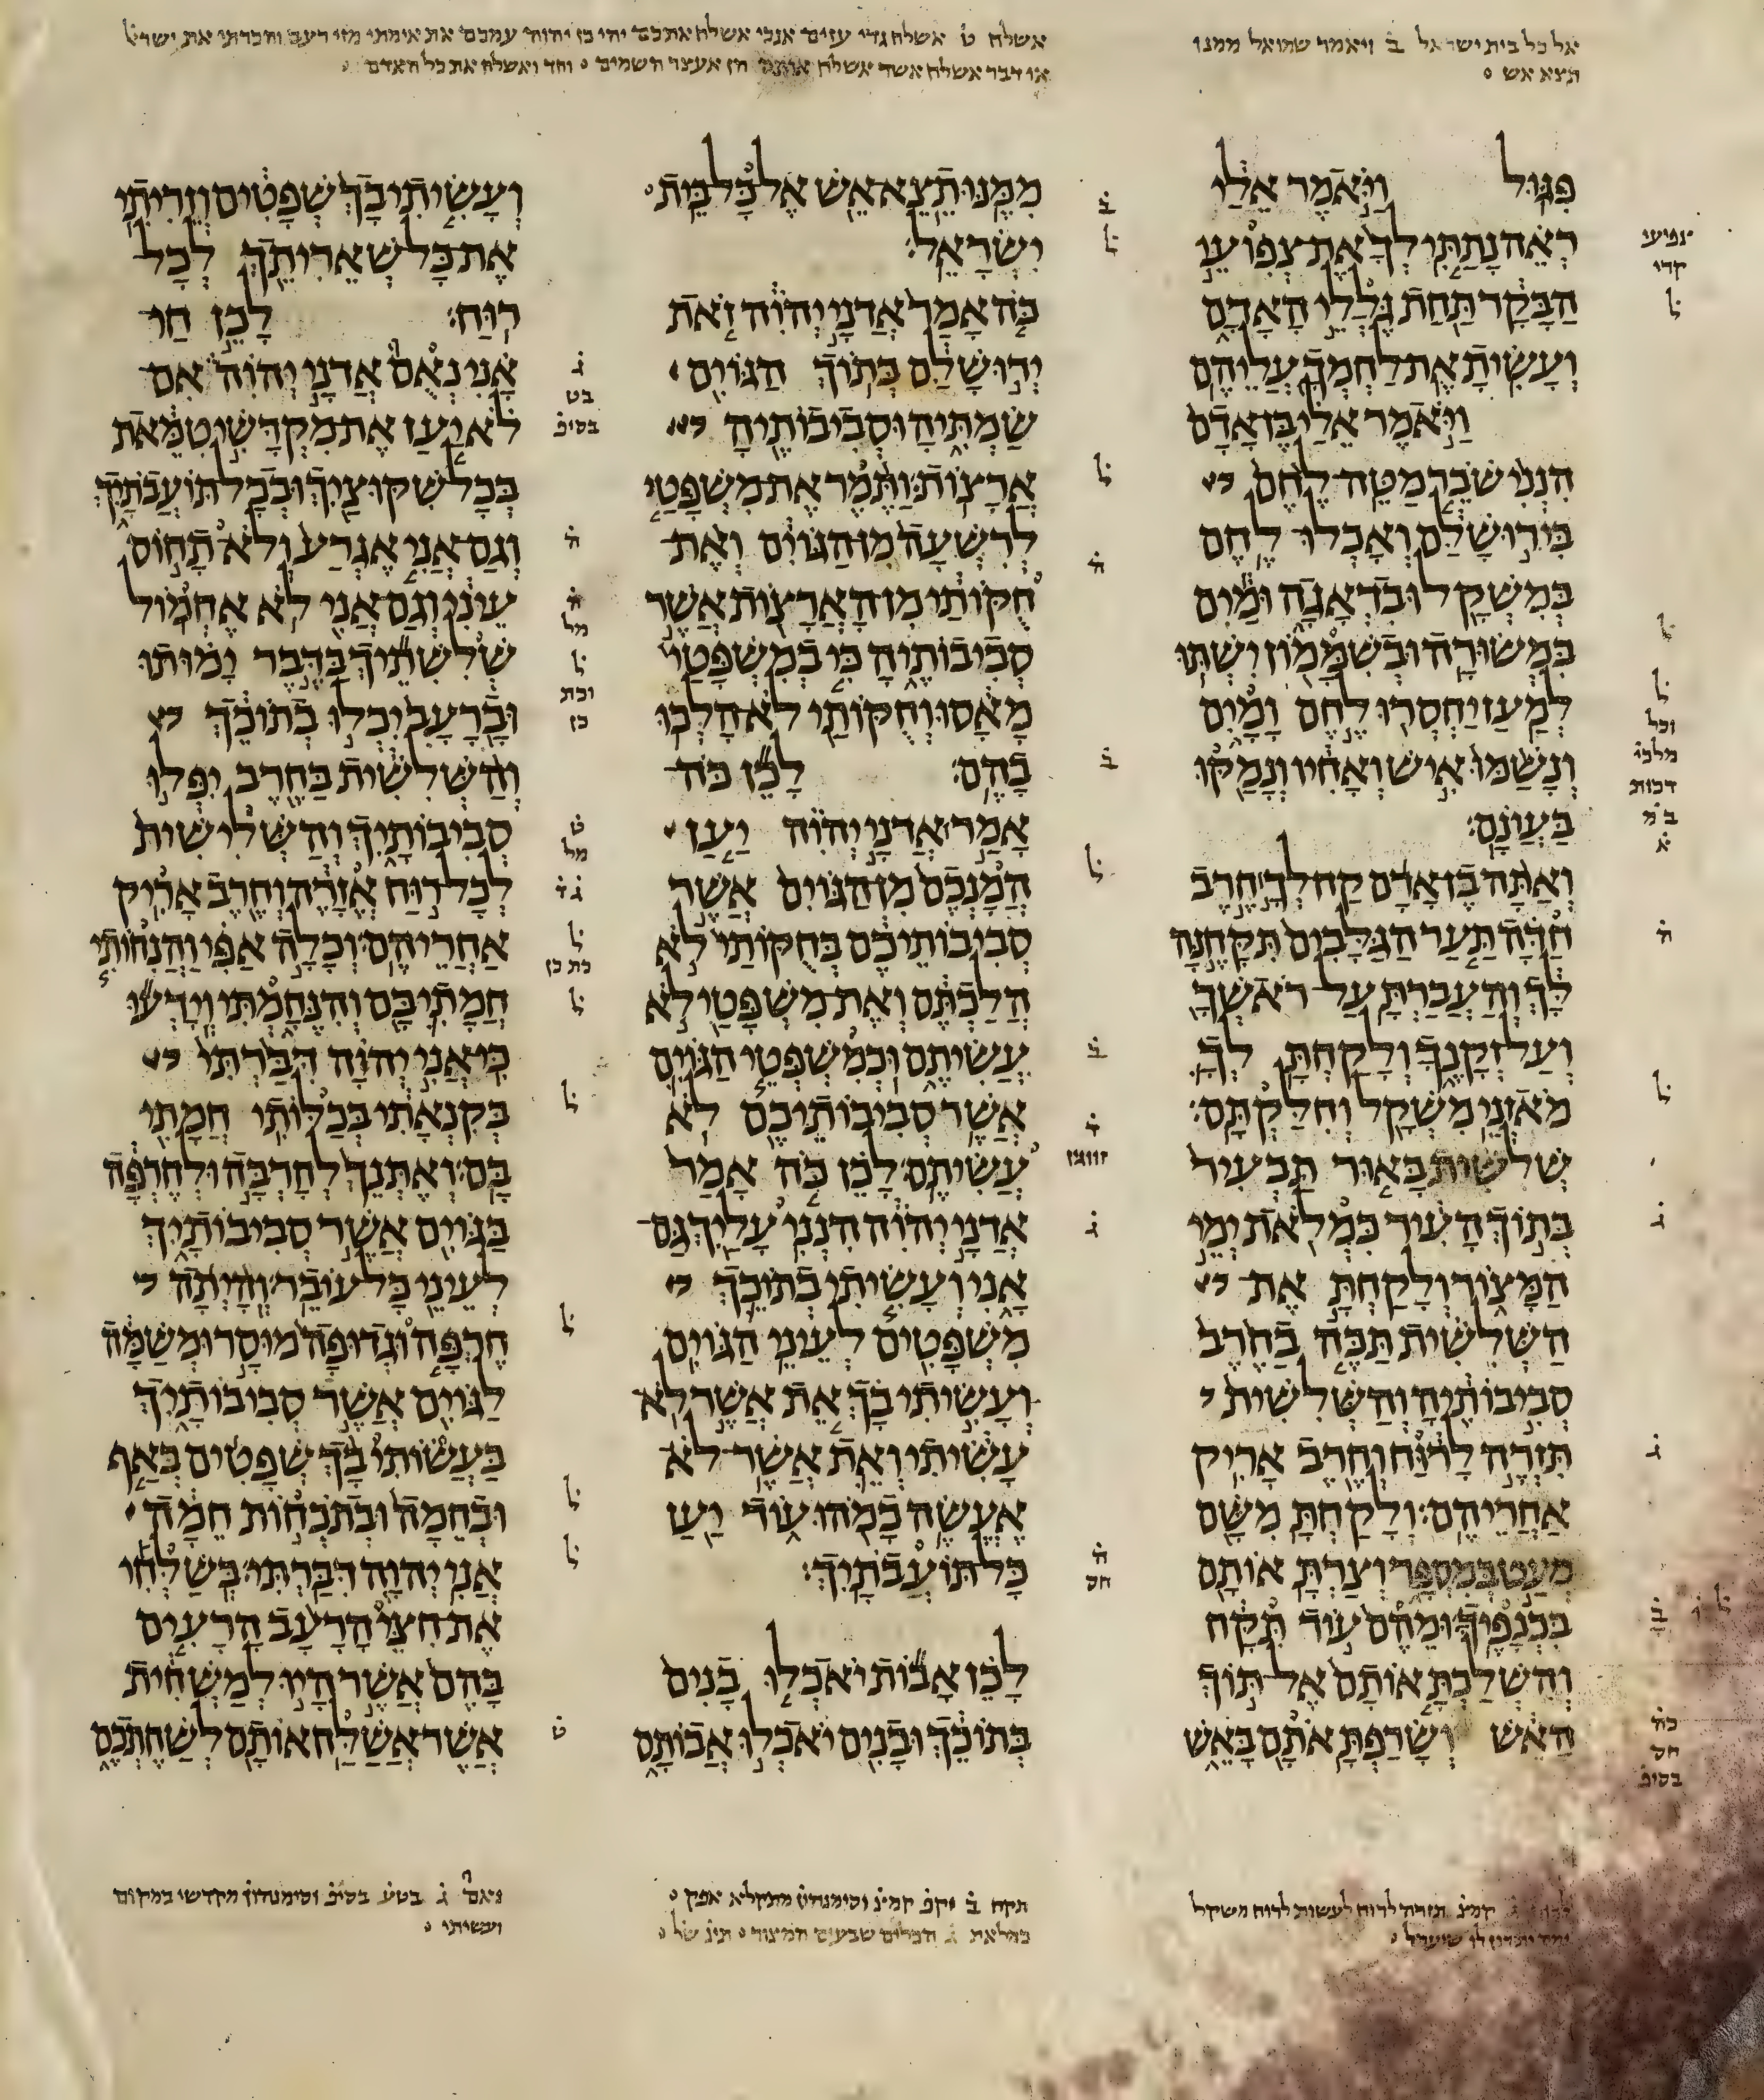 אל כל בית ישראל ב ויאמר שמואל ממנו
תצא אש
אשלח ט אשלח גדי עזים אנכי אשלח אתכם יהי כן יהוה עמכם את אימתי מזי רעב והכרתי את ישר
או דבר אשלח אשר אשלח אותה הן אעצר השמים וחד ואשלח את כל האדם
פִּגּוּל וַיֹּאמֶר אֵלַי
רְאֵה נָתַתִּי לְךָ אֶת צְפִוּעֵי
הַבָּקָר תַּחַת גֶּלְלֵי הָאָדָם
וְעָשִׂיתָ אֶת לַחְמְךָ עֲלֵיהֶם
וַיֹּאמֶר אֵלַי בֶּן אָדָם
הִנְנִי שֹׁבֵר מַטֵּה לֶחֶם
בִּירוּשָׁלִַם וְאָכְלוּ לֶחֶם
בְּמִשְׁקָל וּבִדְאָגָה וּמַיִם
בִּמְשׂוּרָה וּבְשִׁמָּמוֹן יִשְׁתּוּ
לְמַעַן יַחְסְרוּ לֶחֶם וָמָיִם
וְנָשַׁמּוּ אִישׁ וְאָחִיו וְנָמַקּוּ
בַּעֲוֺנָם׃
וְאַתָּה בֶן אָדָם קַח לְךָ חֶרֶב
חַדָּה תַּעַר הַגַּלָּבִים תִּקָּחֶנָּה
לָּךְ וְהַעֲבַרְתָּ עַל רֹאשְׁךָ
וְעַל זְקָנֶךָ וְלָקַחְתָּ לְךָ
מֹאזְנֵי מִשְׁקָל וְחִלַּקְתָּם׃
שְׁלִשִׁית בָּאוּר תַּבְעִיר
בְּתוֹךְ הָעִיר כִּמְלֹאת יְמֵי
הַמָּצוֹר וְלָקַחְתָּ אֶת
הַשְּׁלִשִׁית תַּכֶּה בַחֶרֶב
סְבִיבוֹתֶיהָ וְהַשְּׁלִשִׁית
תִּזְרֶה לָרוּחַ וְחֶרֶב אָרִיק
אַחֲרֵיהֶם׃ וְלָקַחְתָּ מִשָּׁם
מְעַט בְּמִסְפָּר וְצַרְתָּ אוֹתָם
בִּכְנָפֶיךָ׃ וּמֵהֶם עוֹד תִּקָּח
וְהִשְׁלַכְתָּ אוֹתָם אֶל תּוֹךְ
הָאֵשׁ וְשָׂרַפְתָּ אֹתָם בָּאֵשׁ
מִמֶּנּוּ תֵצֵא אֵשׁ אֶל כָּל בֵּית
יִשְׂרָאֵל׃
כֹּה אָמַר אֲדֹנָי יְהוִה זֹאת
יְרוּשָׁלִַם בְּתוֹךְ הַגּוֹיִם
שַׂמְתִּיהָ וּסְבִיבוֹתֶיהָ
אֲרָצוֹת׃ וַתֶּמֶר אֶת מִשְׁפָּטַי
לְרִשְׁעָה מִן הַגּוֹיִם וְאֶת
חֻקּוֹתַי מִן הָאֲרָצוֹת אֲשֶׁר
סְבִיבוֹתֶיהָ כִּי בְמִשְׁפָּטַי
מָאָסוּ וְחֻקּוֹתַי לֹא הָלְכוּ
בָהֶם׃ לָכֵן כֹּה
אָמַר אֲדֹנָי יְהוִה יַעַן
הֲמָנְכֶם מִן הַגּוֹיִם אֲשֶׁר
סְבִיבוֹתֵיכֶם בְּחֻקּוֹתַי לֹא
הֲלַכְתֶּם וְאֶת מִשְׁפָּטַי לֹא
עֲשִׂיתֶם וּכְמִשְׁפְּטֵי הַגּוֹיִם
אֲשֶׁר סְבִיבוֹתֵיכֶם לֹא
עֲשִׂיתֶם׃ לָכֵן כֹּה אָמַר
אֲדֹנָי יְהוִה הִנְנִי עָלַיִךְ גַּם
אָנִי וְעָשִׂיתִי בְתוֹכֵךְ
מִשְׁפָּטִים לְעֵינֵי הַגּוֹיִם
וְעָשִׂיתִי בָךְ אֵת אֲשֶׁר לֹא
עָשִׂיתִי וְאֵת אֲשֶׁר לֹא
אֶעֱשֶׂה כָמֹהוּ עוֹד יַעַ
כָּל תּוֹעֲבֹתָיִךְ׃
לָכֵן אָבוֹת יֹאכְלוּ בָנִים
בְּתוֹכֵךְ וּבָנִים יֹאכְלוּ אֲבוֹתָם
וְעָשִׂיתִי בָךְ שְׁפָטִים וְזֵרִיתִי
אֶת כָּל שְׁאֵרִיתֵךְ לְכָל
רוּחַ׃ לָכֵן חַי
אָנִי נְאֻם אֲדֹנָי יְהוִה אִם
לֹא יַעַן אֶת מִקְדָּשִׁי טִמֵּאת
בְּכָל שִׁקּוּצַיִךְ וּבְכָל תּוֹעֲבֹתָיִךְ
וְגַם אֲנִי אֶגְרַע וְלֹא תָחוֹס
עֵינִי וְגַם אֲנִי לֹא אֶחְמוֹל׃
שְׁלִשִׁתֵיךְ בַּדֶּבֶר יָמוּתוּ
וּבָרָעָב יִכְלוּ בְתוֹכֵךְ
וְהַשְּׁלִשִׁית בַּחֶרֶב יִפְּלוּ
סְבִיבוֹתָיִךְ וְהַשְּׁלִישִׁית
לְכָל רוּחַ אֱזָרֶה וְחֶרֶב אָרִיק
אַחֲרֵיהֶם׃ וְכָלָה אַפִּי וַהֲנִחוֹתִי
חֲמָתִי בָּם וְהִנֶּחָמְתִּי וְיָדְעוּ
כִּי אֲנִי יְהוָה דִּבַּרְתִּי
בְּקִנְאָתִי בְּכַלּוֹתִי חֲמָתִי
בָּם׃ וְאֶתְּנֵךְ לְחָרְבָּה וּלְחֶרְפָּה
בַּגּוֹיִם אֲשֶׁר סְבִיבוֹתָיִךְ
לְעֵינֵי כָּל עוֹבֵר׃ וְהָיְתָה
חֶרְפָּה וּגְדוּפָה מוּסָר וּמְשַׁמָּה
לַגּוֹיִם אֲשֶׁר סְבִיבוֹתָיִךְ
בַּעֲשׂוֹתִי בָךְ שְׁפָטִים בְּאַף
וּבְחֵמָה וּבְתֹכְחוֹת חֵמָה
אֲנִי יְהוָה דִּבַּרְתִּי׃ בְּשַׁלְּחִי
אֶת חִצֵּי הָרָעָב הָרָעִים
בָּהֶם אֲשֶׁר הָיוּ לְמַשְׁחִית
אֲשֶׁר אֲשַׁלַּח אוֹתָם לְשַׁחֶתְכֶם
קמיצ תזרה לרוח לעשות לרוח משקל
תקח ב וקפ קמיצ וסימנהון מתקלא אפק
במלאת ג הכלים שבעים המיצור
נאם ג בטע בסיפ וסימנהון מקדשי במקום
ועשיתי